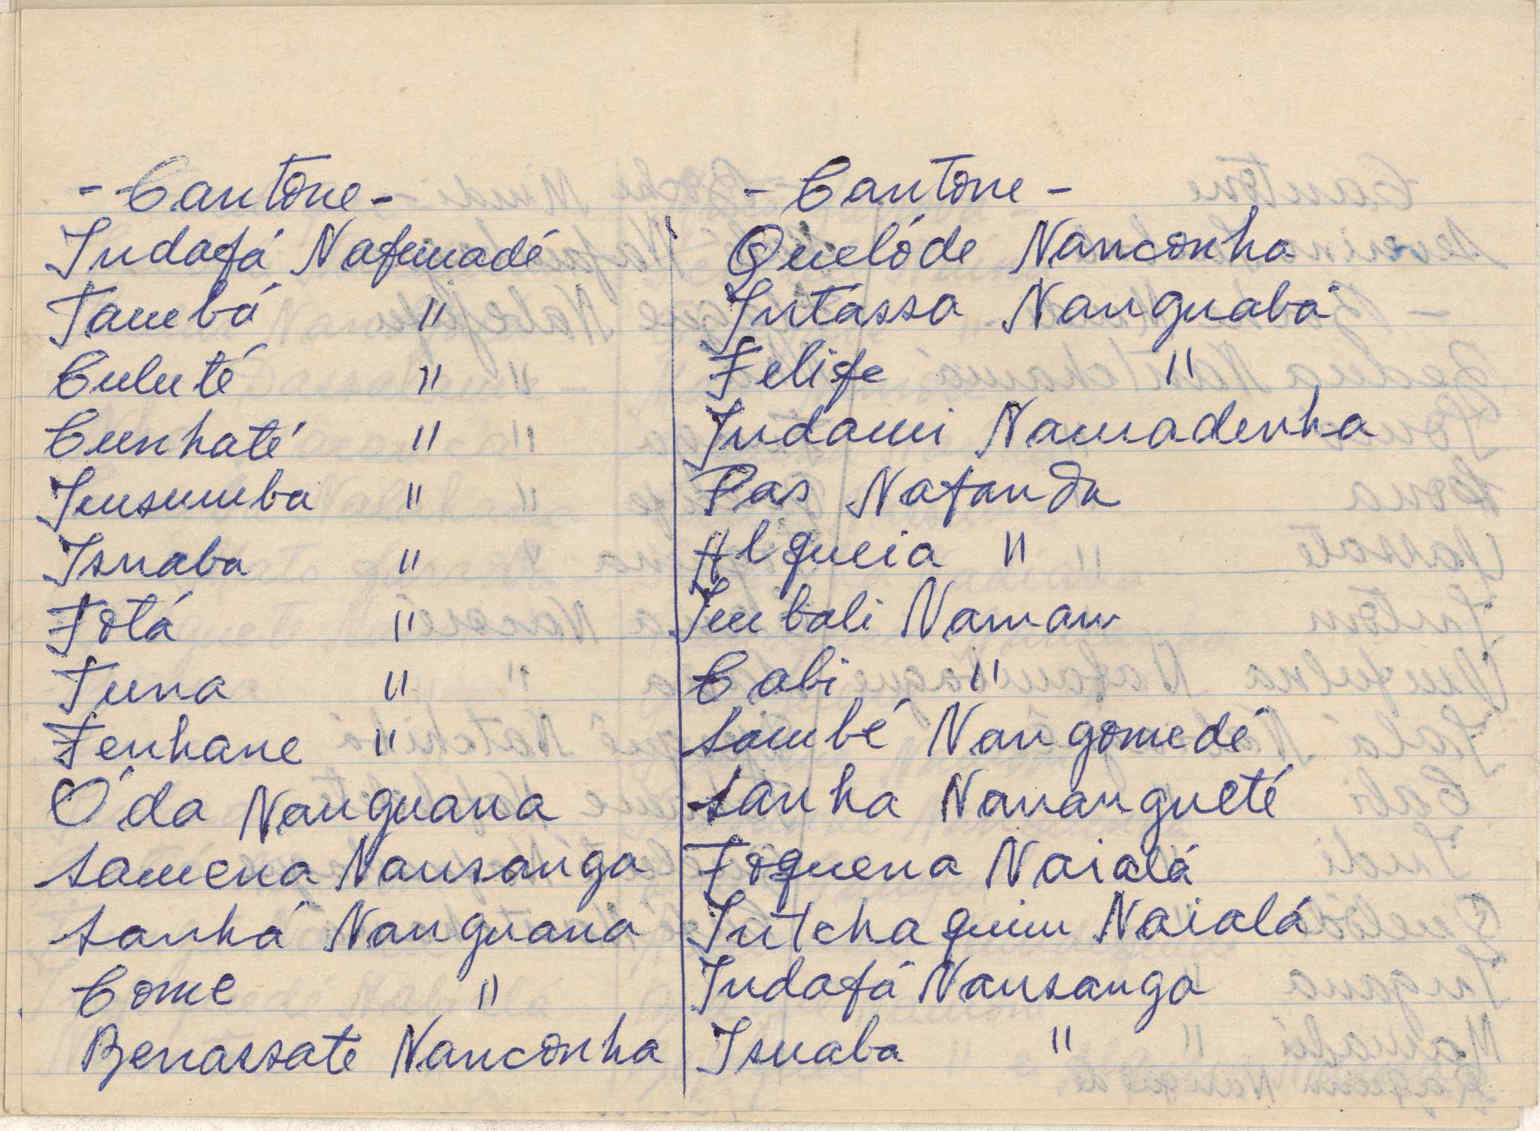 - Cantone -
Indafá Nafumadé
Tambá "
Culuté "
Cunhaté "
Insumba "
Isnaba "
Totá "
Tuna "
Fenhane "
Óda Nanguana
Samena Nansanga
Sanhá Nanguana
Come "
Benassate Nanconha
- Cantone -
Quelóde Nanconha
Intassa Nanguabá
Felife "
Indami Namadenha
Pas Nafanda
Alqueia "
Imbali Namam
Cabi "
Sambé Nangomedé
Sanha Navangueté
Foquena Naialá
Intchaquim Naialá
Indafá Nansanga
Isnaba "